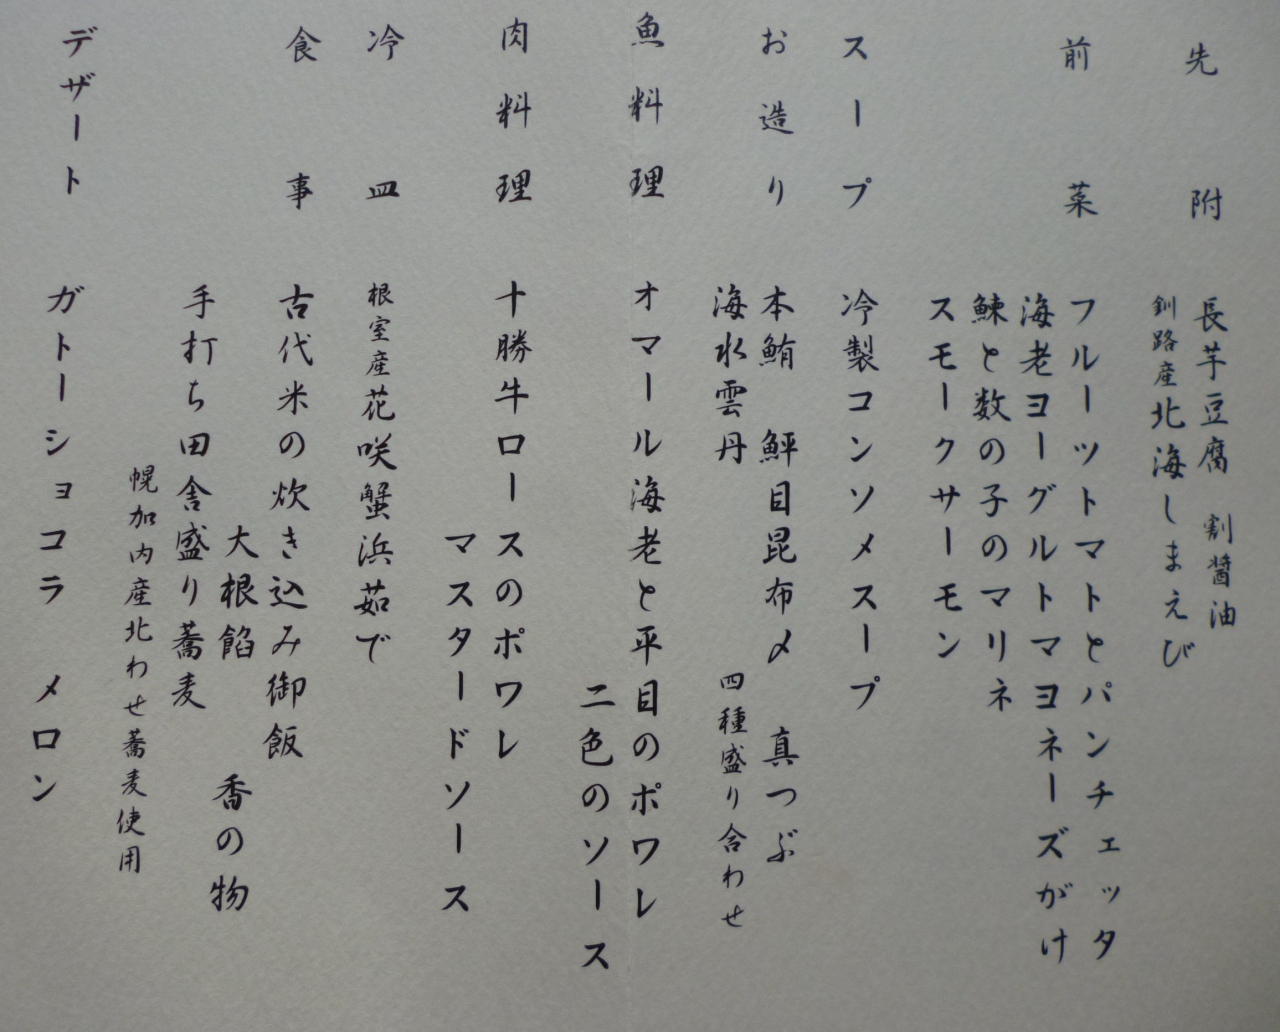 先附　長芋豆腐　割醤油
釧路産北海しまえび
前菜　フルーツトマトとパンチェッタ
海老ヨーグルトマヨネーズがけ
鰊と数の子のマリネ
スモークサーモン
スープ　冷製コンソメスープ
お造り　本鮪　鮃目昆布〆　真つぶ
海水雲丹　四種盛り合わせ
魚料理　オマール海老と平目のポワレ
二色のソース
肉料理　十勝牛ロースのポワレ
マスタードソース
冷皿　根室産花咲蟹浜茹で
食事　古代米の炊き込み御飯
大根餡　香の物
手打ち田舎盛り蕎麦
幌加内産北わせ蕎麦使用
デザート　ガトーショコラ　メロン